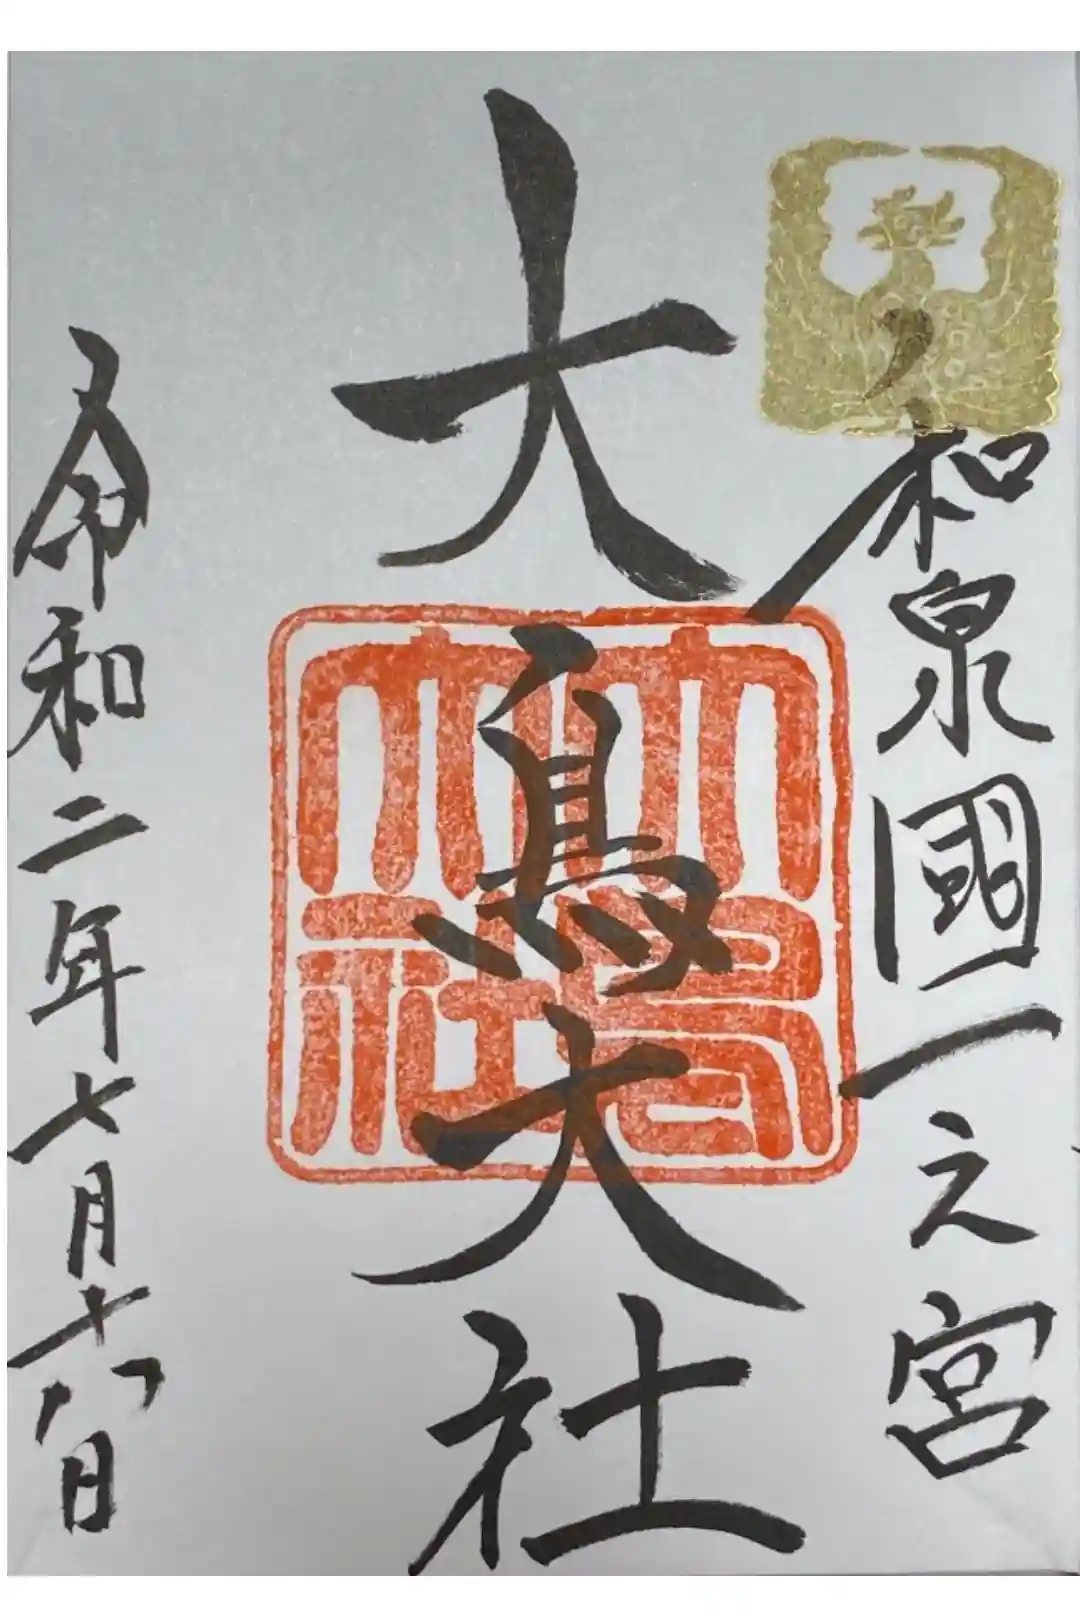 和泉國一之宮
大鳥大社
大鳥大社
令和二年七月十八日